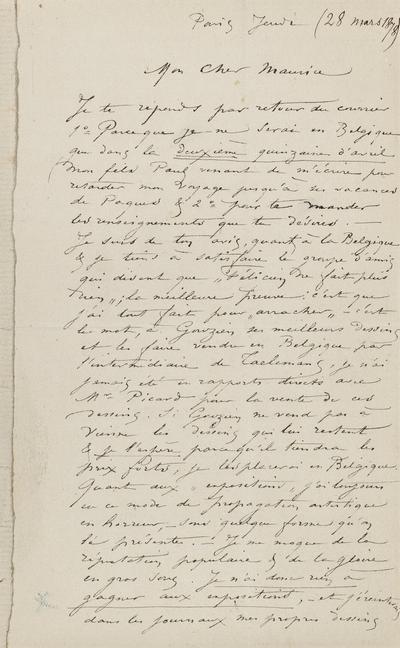 Paris Jeudi (28 mars 1878)
Mon Cher Maurice
Je te reponds par retour du courrier
1o Parceque je ne serai en Belgique
que dans la deuxième quinzaine d'avril
(Mon fils Paul venant de m'écrire pour
retarder mon voyage jusqu'à ses vacances
de Paques) & 2o pour te mander
les renseignements que tu desires. —
Je suis de ton avis, quant à la Belgique
& je tiens à satisfaire le groupe d'amis
qui disent que „Félicien ne fait plus
rien"; la meilleure preuve: c'est que
j'ai tout fait pour „arracher" – c'est
le mot, à Gouzien ses meilleurs dessins
et les faire vendre en Belgique par
l'intermédiaire de Taelemans, je n'ai
jamais été en rapports directs avec
Mr Picard pour la vente de ces
dessins. Si Gouzien ne vend pas à
Vienne les dessins qui lui restent
& je l'espère, parce qu'il tiendra les
prix forts, je les placerai en Belgique.
Quant aux expositions, j'ai toujours
eu ce mode de propagation artistique
en horreur, sous quelque forme qu'il
se présente. — Je me moque de la
réputation populaire & de la gloire
en gros sous. Je n'ai donc rien à
gagner aux expositions, – et j'
dans les journaux mes propres dessins